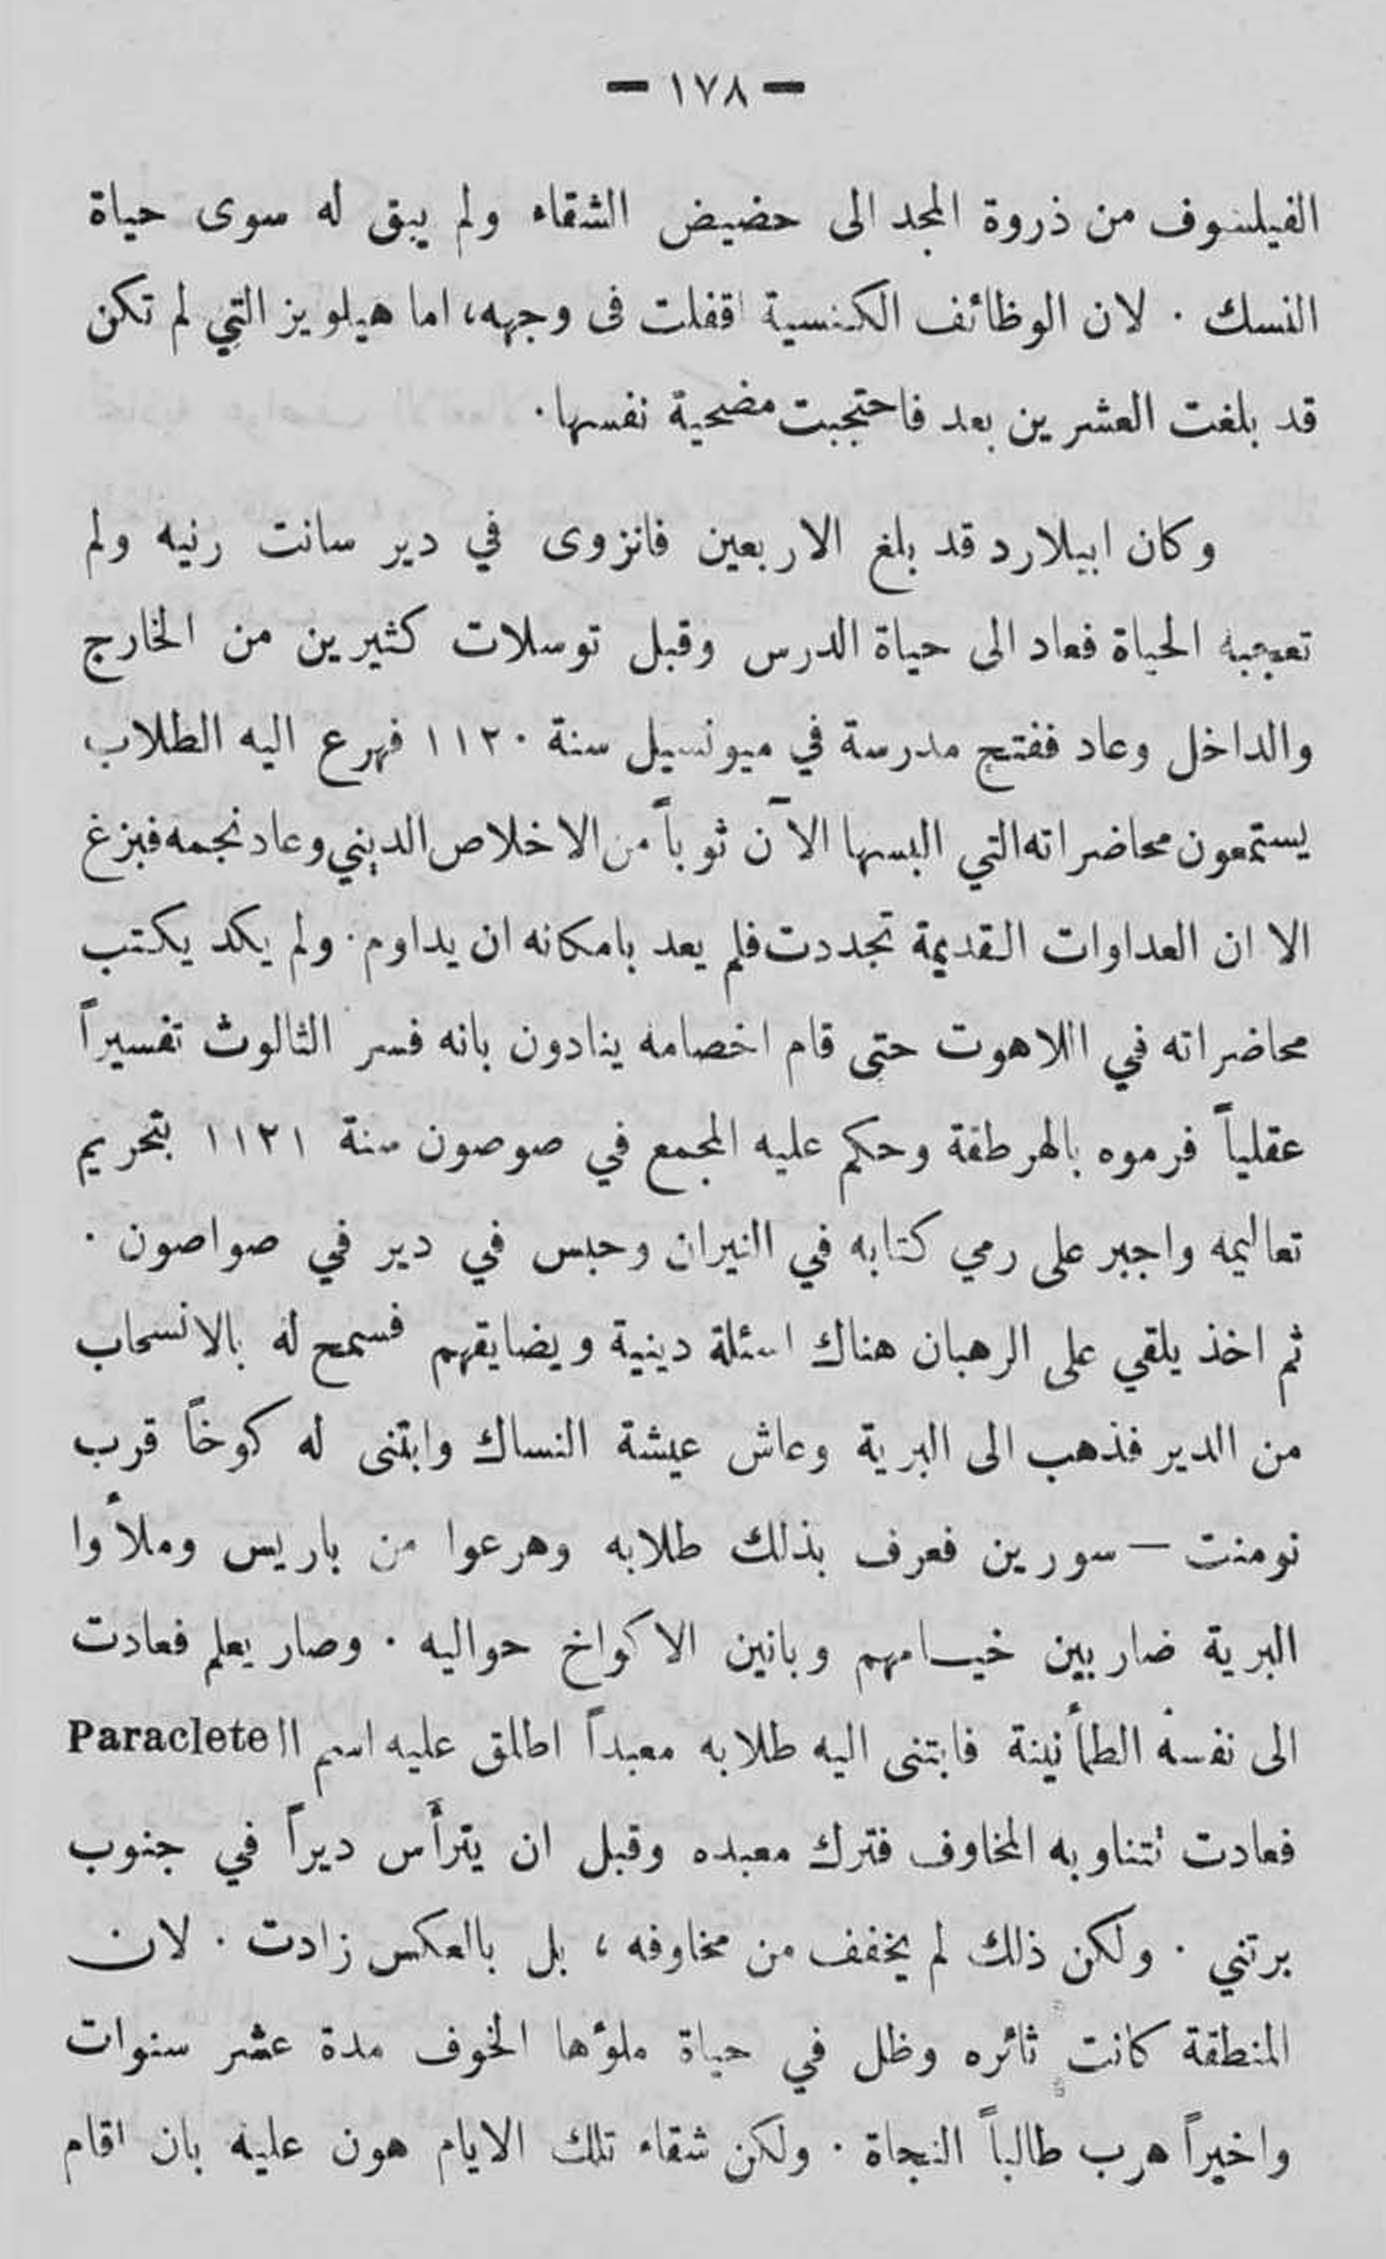 — ١٧٨ —
الفيلسوف من ذروة المجد الى حضيض الشقاء ولم يبق له سوى حياة
النسك . لان الوظائف الكنسية اقفلت فى وجهه، اما هيلويز التي لم تكن
قد بلغت العشرين بعد فاحتجبت مضحية نفسها.
وكان ابيلارد قد بلغ الاربعين فانزوى في دير سانت رنيه ولم
تعجبه الحياة فعاد الى حياة الدرس وقبل توسلات كثيرين من الخارج
والداخل وعاد ففتح مدرسة في ميونسيل سنة ١١٢٠ فهرع اليه الطلاب
يستمعون محاضراته التي البسها الآن ثوباً من الاخلاص الديني وعاد نجمه فبزغ
الا ان العداوات القديمة تجددت فلم يعد بامكانه ان يداوم. ولم يكد يكتب
محاضراته في اللاهوت حتى قام اخصامه ينادون بانه فسر الثالوث تفسيراً
عقلياً فرموه بالهرطقة وحكم عليه المجمع في صوصون سنة ١١٢١ بتحريم
تعاليمه واجبر على رمي كتابه في النيران وحبس في دير في صواصون .
ثم اخذ يلقي على الرهبان هناك اسئلة دينية ويضايقهم فسمح له بالانسحاب
من الدير فذهب الى البرية وعاش عيشة النساك وابتنى له كوخاً قرب
نومنت — سورين فعرف بذلك طلابه وهرعوا من باريس وملأوا
البرية ضاربين خيامهم وبانين الاكواخ حواليه . وصار يعلم فعادت
الى نفسه الطمأنينة فابتنى اليه طلابه معبداً اطلق عليه اسم ال Paraclete
فعادت تتناوبه المخاوف فترك معبده وقبل ان يترأس ديراً في جنوب
برتني . ولكن ذلك لم يخفف من مخاوفه ، بل بالعكس زادت . لان
المنطقة كانت ثائره وظل في حياة ملؤها الخوف مدة عشر سنوات
واخيراً هرب طالباً النجاة . ولكن شقاء تلك الايام هون عليه بان اقام